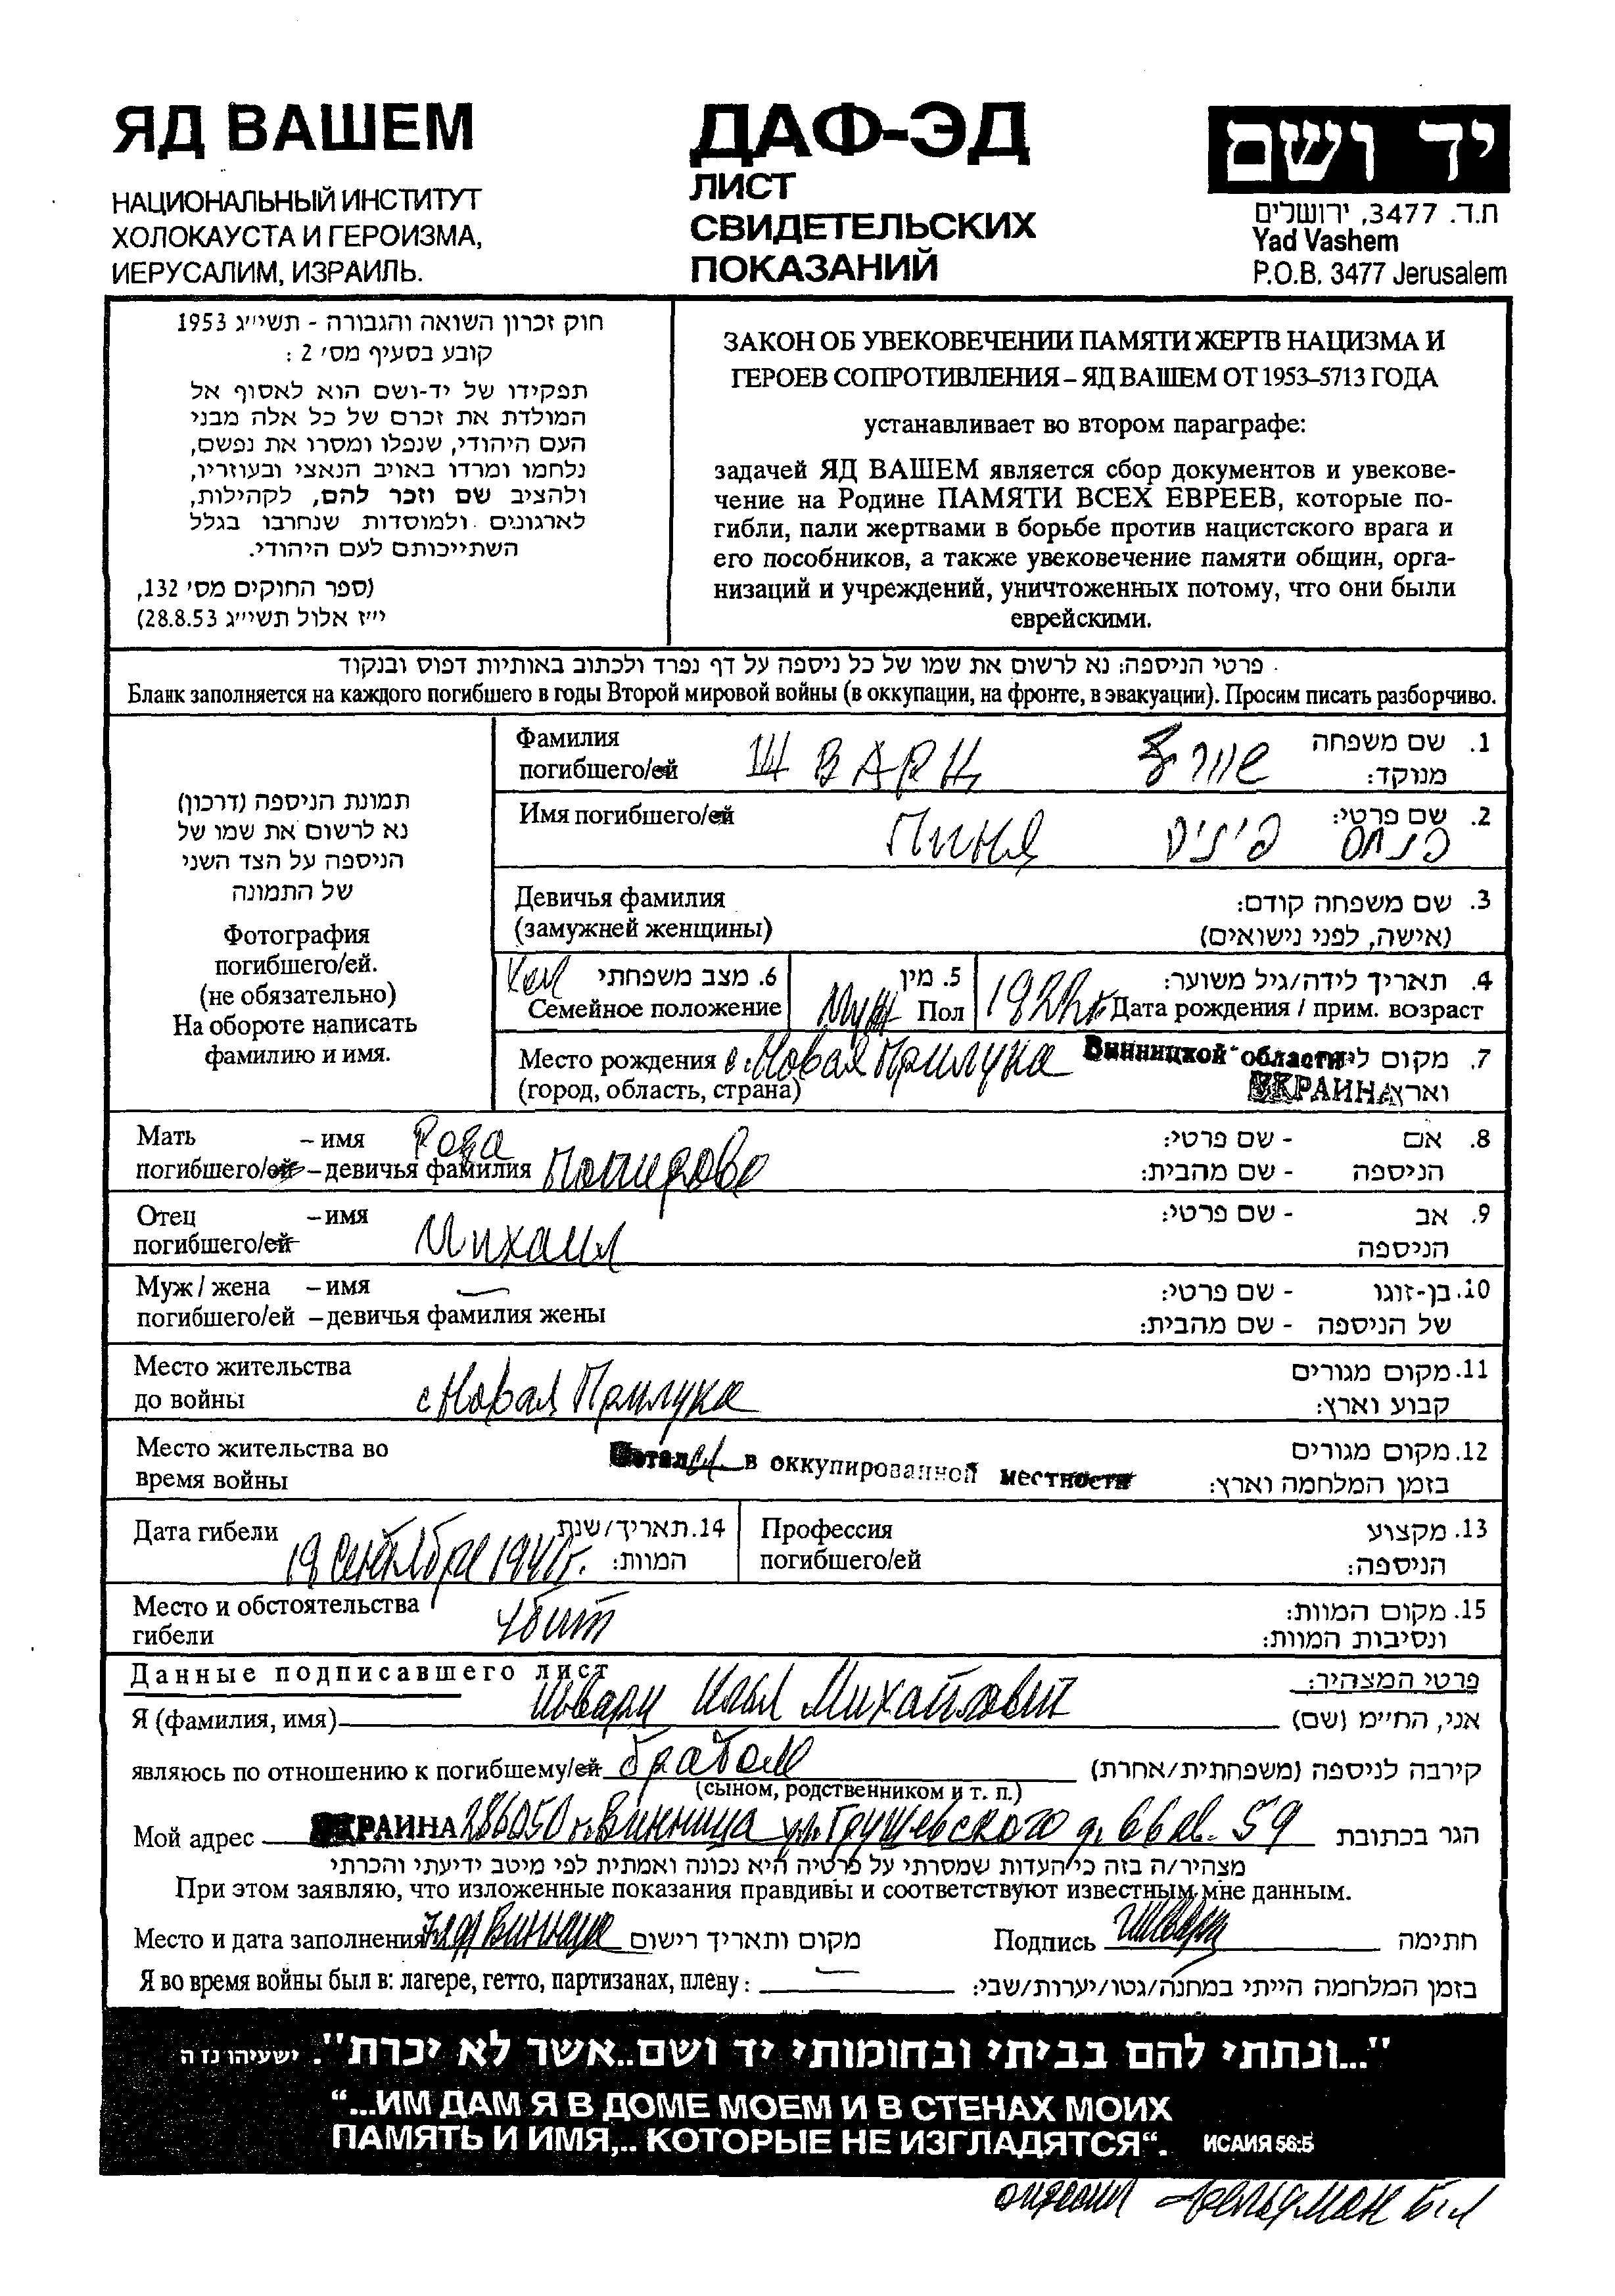 ЯД ВАШЕМ
НАЦИОНАЛЬНЫЙ ИНСТИТУТ
ХОЛОКАУСТА И ГЕРОИЗМА,
ИЕРУСАЛИМ, ИЗРАИЛЬ.
ДАФ-ЭД
ЛИСТ
СВИДЕТЕЛЬСКИХ
ПОКАЗАНИЙ
יד ושם
ת.ד. 3477, ירושלים
Yad Vashem
P.O.B. 3477 Jerusalem
חוק זכרון השואה והגבורה - תשי״ג 1953
קובע בסעיף מס׳ 2 :
תפקידו של יד-ושם הוא לאסוף אל
המולדת את זכרם של כל אלה מבני
העם היהודי, שנפלו ומסרו את נפשם,
נלחמו ומרדו באויב הנאצי ובעוזריו,
ולהציב שם וזכר להם, לקהילות,
לארגונים ולמוסדות שנחרבו בגלל
השתייכותם לעם היהודי.
(ספר החוקים מס׳ 132,
י״ז אלול תשי״ג 28.8.53)
ЗАКОН ОБ УВЕКОВЕЧЕНИИ ПАМЯТИ ЖЕРТВ НАЦИЗМА И
ГЕРОЕВ СОПРОТИВЛЕНИЯ – ЯД ВАШЕМ ОТ 1953–5713 ГОДА
устанавливает во втором параграфе:
задачей ЯД ВАШЕМ является сбор документов и увекове-
чение на Родине ПАМЯТИ ВСЕХ ЕВРЕЕВ, которые по-
гибли, пали жертвами в борьбе против нацистского врага и
его пособников, а также увековечение памяти общин, орга-
низаций и учреждений, уничтоженных потому, что они были
еврейскими.
פרטי הניספה: נא לרשום את שמו של כל ניספה על דף נפרד ולכתוב באותיות דפוס ובנקוד
Бланк заполняется на каждого погибшего в годы Второй мировой войны (в оккупации, на фронте, в эвакуации). Просим писать разборчиво.
תמונת הניספה (דרכון)
נא לרשום את שמו של
הניספה על הצד השני
של התמונה
Фотография
погибшего/ей.
(не обязательно)
На обороте написать
фамилию и имя.
Фамилия ШВАРЦ שוורץ 1. שם משפחה
погибшего/ей מנוקד:
Имя погибшего/ей Пиня פיניס פנחס 2. שם פרטי:
Девичья фамилия 3. שם משפחה קודם:
(замужней женщины) (אישה, לפני נישואים)
6. מצב משפחתי 5. מין 4. תאריך לידה/גיל משוער:
Семейное положение Муж Пол 1922г. Дата рождения / прим. возраст
Место рождения с. Новая Прилука Винницкой области 7. מקום
(город, область, страна) УКРАИНА וארץ
Мать – имя Роза 8. אם - שם פרטי:
погибшего/ей – девичья фамилия הניספה - שם מהבית:
Отец – имя Михаил 9. אב - שם פרטי:
погибшего/ей הניספה
Муж / жена – имя — 10. בן-זוגו - שם פרטי:
погибшего/ей – девичья фамилия жены של הניספה - שם מהבית:
Место жительства с. Новая Прилука 11. מקום מגורים
до войны קבוע וארץ:
Место жительства во в оккупированной местности 12. מקום מגורים
время войны בזמן המלחמה וארץ:
Дата гибели 19 сентября 1941г. 14. תאריך/שנת המוות: Профессия 13. מקצוע
погибшего/ей הניספה:
Место и обстоятельства убит 15. מקום המוות:
гибели ונסיבות המוות:
Данные подписавшего лист פרטי המצהיר:
Я (фамилия, имя) Шварц Илья Михайлович אני, החי״מ (שם)
являюсь по отношению к погибшему/ей братом קירבה לניספה (משפחתית/אחרת)
(сыном, родственником и т. п.)
Мой адрес УКРАИНА 286050 г. Винница ул. Грушевского д. 66 кв. 59 הגר בכתובת
מצהיר/ה בזה כי העדות שמסרתי על פרטיה היא נכונה ואמתית לפי מיטב ידיעתי והכרתי
При этом заявляю, что изложенные показания правдивы и соответствуют известным мне данным.
Место и дата заполнения Винница מקום ותאריך רישום Подпись Шварц חתימה
Я во время войны был в: лагере, гетто, партизанах, плену: — בזמן המלחמה הייתי במחנה/גטו/יערות/שבי:
"...ונתתי להם בביתי ובחומותי יד ושם..אשר לא יכרת". ישעיהו נז ה
“...ИМ ДАМ Я В ДОМЕ МОЕМ И В СТЕНАХ МОИХ
ПАМЯТЬ И ИМЯ,.. КОТОРЫЕ НЕ ИЗГЛАДЯТСЯ“. ИСАИЯ 56:5